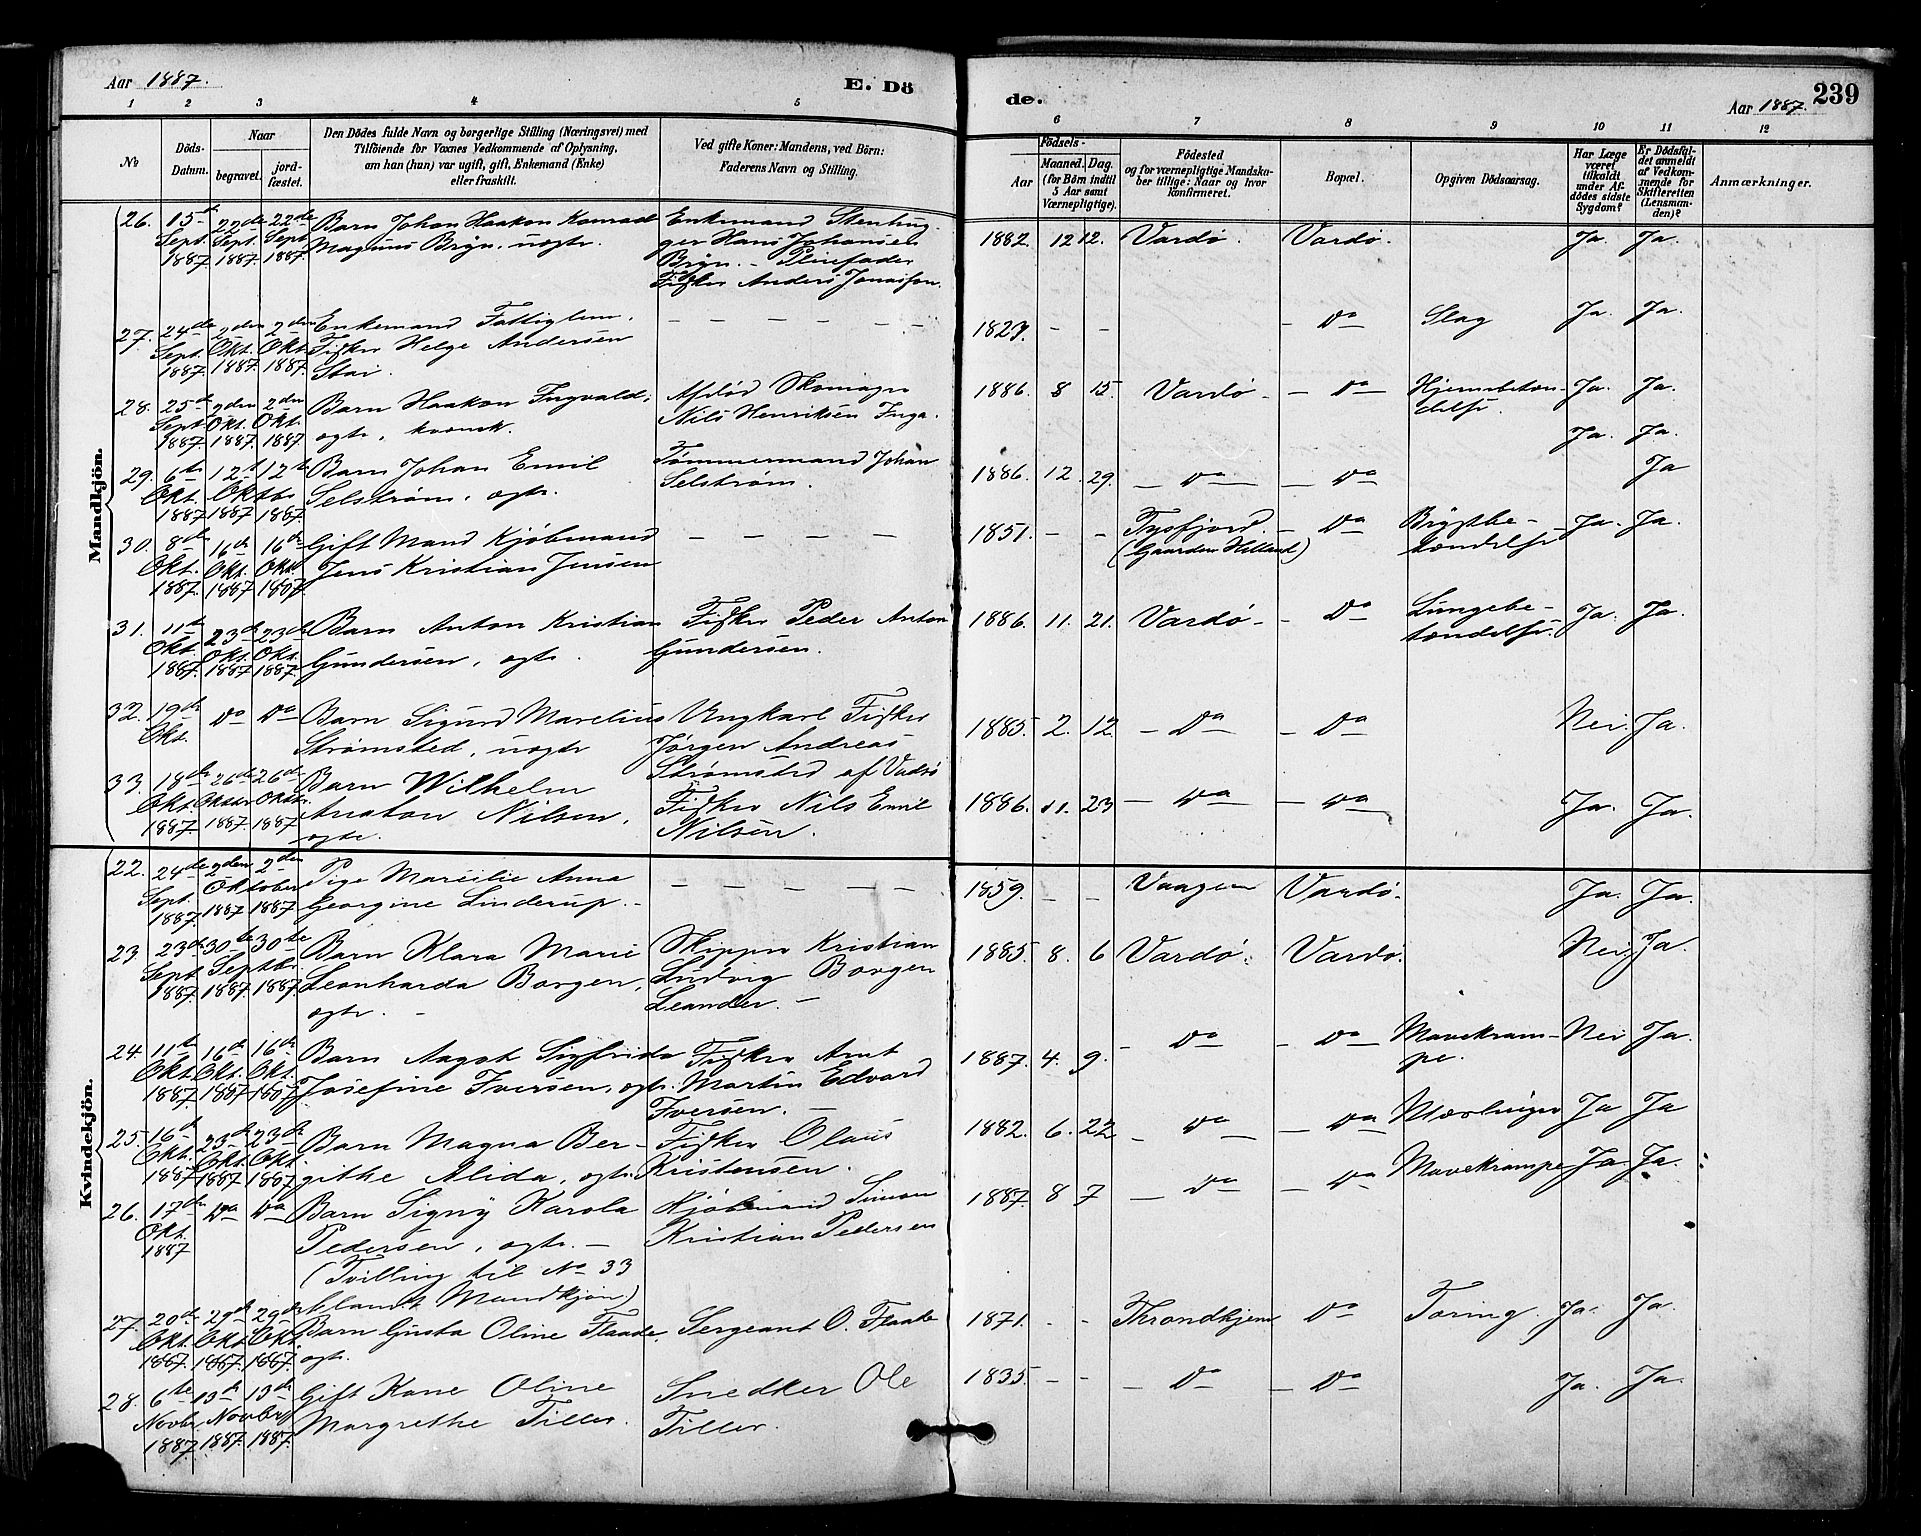 Aar 1887.
E. Dö
1 2 3 4 5
No
Döds-
Datum.
Naar
begravet.
jord-
fæstet.
Den Dödes fulde Navn og borgerlige Stilling (Næringsvei) med
Tilföiende for Voxnes Vedkommende af Oplysning,
om han (hun) var ugift, gift, Enkemand (Enke)
eller fraskilt.
Ved gifte Koner: Mandens, ved Börn:
Faderens Navn og Stilling.
Mandkjön.
26. 15de Sept. 1887 22de Sept. 1887. 22de Sept. 1887.
Barn Johan Haakon Konrad
Magnus Bryn, uogte.
Enkemand Stenhug-
ger Hans Johansen
Bryn. - Pleiefader
Fisker Anders Jonassen.
27. 24de Sept. 1887 2den Okt. 1887 2den Okt. 1887.
Enkemand Fattiglem,
Fisker Helge Andersen
Stai.
28. 25de Sept. 1887 2den Okt. 1887. 2den Okt. 1887
Barn Haakon Ingvald,
ogte, kvænsk.
Afdød Skomager
Nils Henriksen Inga.
29. 6te Okt. 1887 12te Okt. 1887 12te Oktbr. 1887.
Barn Johan Emil
Selstrøm, ogte.
Tømmermand Johan
Selstrøm.
30. 8de Okt. 1887. 16de Okt. 1887 16de Okt. 1887
Gift Mand Kjøbmand
Jens Kristian Jensen
31. 11te Okt. 1887. 23de Okt. 1887 23de Okt. 1887
Barn Anton Kristian
Gundersen, ogte.
Fisker Peder Anton
Gundersen.
32. 19de Okt. Do Do
Barn Sigurd Marelius
Strømsted, uogte
Ungkarl Fisker
Jørgen Andreas
Strømsted af Vadsø
33. 18de Okt. 1887. 26de Oktober 1887. 26de Oktbr. 1887
Barn Wilhelm
Anaton Nilsen,
ogte.
Fisker Nils Emil
Nilsen.
Kvindekjön.
22. 24de Sept. 1887 2den Oktober 1887 2den 1887
Pige Marcilie Anna
Georgine Linderup. -
23 23de Sept. 1887 30te Septbr. 1887. 30te 1887.
Barn Klara Marie
Leonharda Borgen,
ogte. -
Skipper Kristian
Ludvig Borgen
Leander. -
24. 11te Okt. 1887. 16de Okt. 1887 16de Okt. 1887
Barn Aagot Sigfrida
Josefine Iversen, ogte.
Fisker Arnt
Martin Edvard
Iversen. -
25. 16de Okt. 1887 23de Okt. 1887 23de Okt. 1887
Barn Magna Ber-
githe Alida, ogte.
Fisker Olaus
Kristensen.
26. 17de Okt. 1887 Do Do
Barn Signy Karola
Pedersen, ogte. -
(Tvilling til No 33
blandt Mandkjøn)
Kjøbmand Simon
Kristian Pedersen
27. 20de Okt. 1887. 29de Okt. 1887. 29de Okt. 1887.
Barn Gusta Oline Flaade,
ogte.
Sergeant O. Flaate
28. 6te Novbr. 1887 13de Novbr. 1887. 13de Novbr. 1887.
Gift Kone Oline
Margrethe Tiller.
Snedker Ole
Tiller.
de.
Aar 1887.
239
6 7 8 9 10 11 12
Födsels-
Aar
Maaned. Dag.
(for Börn indtil
5 Aar samt
Værnepligtige).
Födested
og for værnepligtige Mandskaber
tillige: Naar og hvor
konfirmeret.
Bopæl.
Opgiven Dödsaarsag.
Har Læge
været
tilkaldt
under Af-
dödes sidste
Sygdom?
Er Dödsfal-
det anmeldt
af Vedkom-
mende for
Skifteretten
(Lensman-
den)?
Anmærkninger.
1882. 12 12. Vardø. Vardø. Ja. Ja.
1827. - - - Do Slag Ja. Ja.
1886. 8 15. Vardø - - Do - Hjernebetæn-
delse. Ja. Ja.
Ja. Ja.
1886. 12. 29. - Do - - Do Ja
1851. - - Tysfjord. - Do Brystbe-
tændelse Ja. Ja.
1886. 11. 21. Vardø - - Do Lungebe-
tændelse. Ja. Ja.
1885. 2. 12 - Do - - Do Nei. Ja.
1886. 11. 23 - Do - - Do Ja. Ja.
1859. - - Vaagen Vardø. Ja. Ja.
1885. 8. 6 Vardø. Vardø. Nei. Ja.
1887. 4. 9. - Do - Do Mavekram-
pe. Nei Ja.
1882. 6. 22 - Do - - Do Mæslinger Ja Ja
1887. 8 7 - Do - - Do Mavekrampe Ja Ja.
1871. - - Throndhjem Do Tæring. Ja. Ja.
1835. - - - Do - Do Ja. Ja.